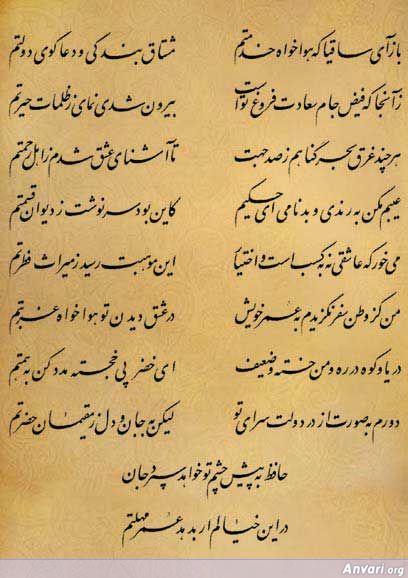 بازآی ساقیا که هواخواه خدمتم مشتاق بندگی و دعاگوی دولتم
زآنجا که فیض جام سعادت فروغ توست بیرون شدی نمای ز ظلمات حیرتم
هر چند غرق بحر گناهم ز صد جهت تا آشنای عشق شدم ز اهل رحمتم
عیبم مکن به رندی و بدنامی ای حکیم کاین بود سرنوشت ز دیوان قسمتم
می خور که عاشقی نه به کسب است و اختیار این موهبت رسید ز میراث فطرتم
من کز وطن سفر نگزیدم به عمر خویش در عشق دیدن تو هواخواه غربتم
دریا و کوه در ره و من خسته و ضعیف ای خضر پی خجسته مدد کن به همتم
دورم به صورت از در دولت سرای تو لیکن به جان و دل ز مقیمان حضرتم
حافظ به پیش چشم تو خواهد سپرد جان
در این خیالم ار بدهد عمر مهلتم
Anvari.org